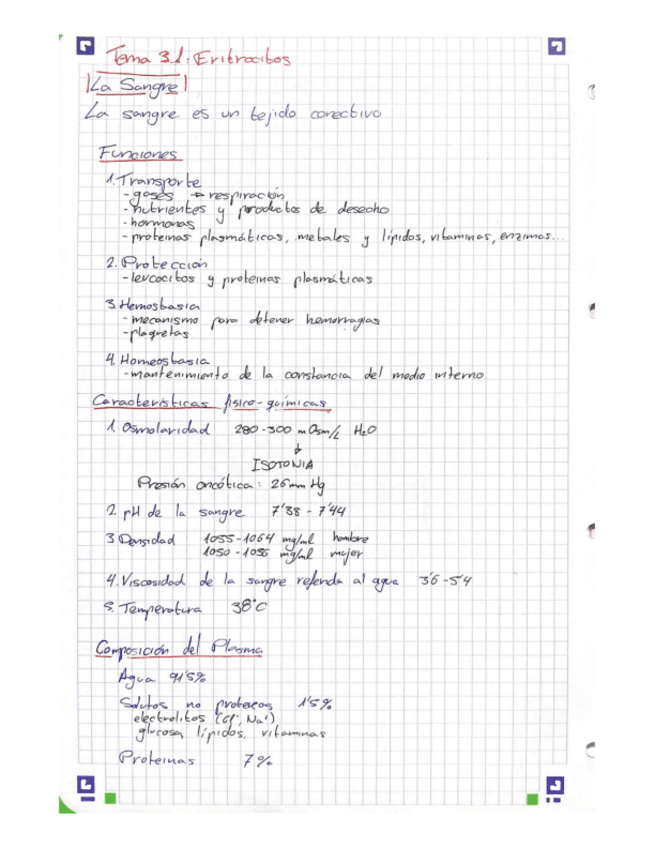 Tema 3.1: Eritrocitos
La Sangre
La sangre es un tejido conectivo
Funciones
1. Transporte
- gases → respiración
- nutrientes y productos de desecho
- hormonas
- proteinas plasmáticas, metales y lípidos, vitaminas, enzimas...
2. Protección
- leucocitos y proteinas plasmáticas
3. Hemostasia
- mecanismo para detener hemorragias
- plaquetas
4. Homeostasia
- mantenimiento de la constancia del medio interno
Características físico-químicas
1. Osmolaridad 280-300 mOsm/L H2O
↓
ISOTONIA
Presión oncótica: 26 mm Hg
2. pH de la sangre 7'38 - 7'44
3. Densidad 1055-1064 mg/ml hombre
1050-1056 mg/ml mujer
4. Viscosidad de la sangre referida al agua 3'6-5'4
5. Temperatura 38°C
Composición del Plasma
Agua 91'5%
Solutos no proteicos 1'5%
electrolitos (Cl-, Na+)
glucosa, lípidos, vitaminas
Proteinas 7%